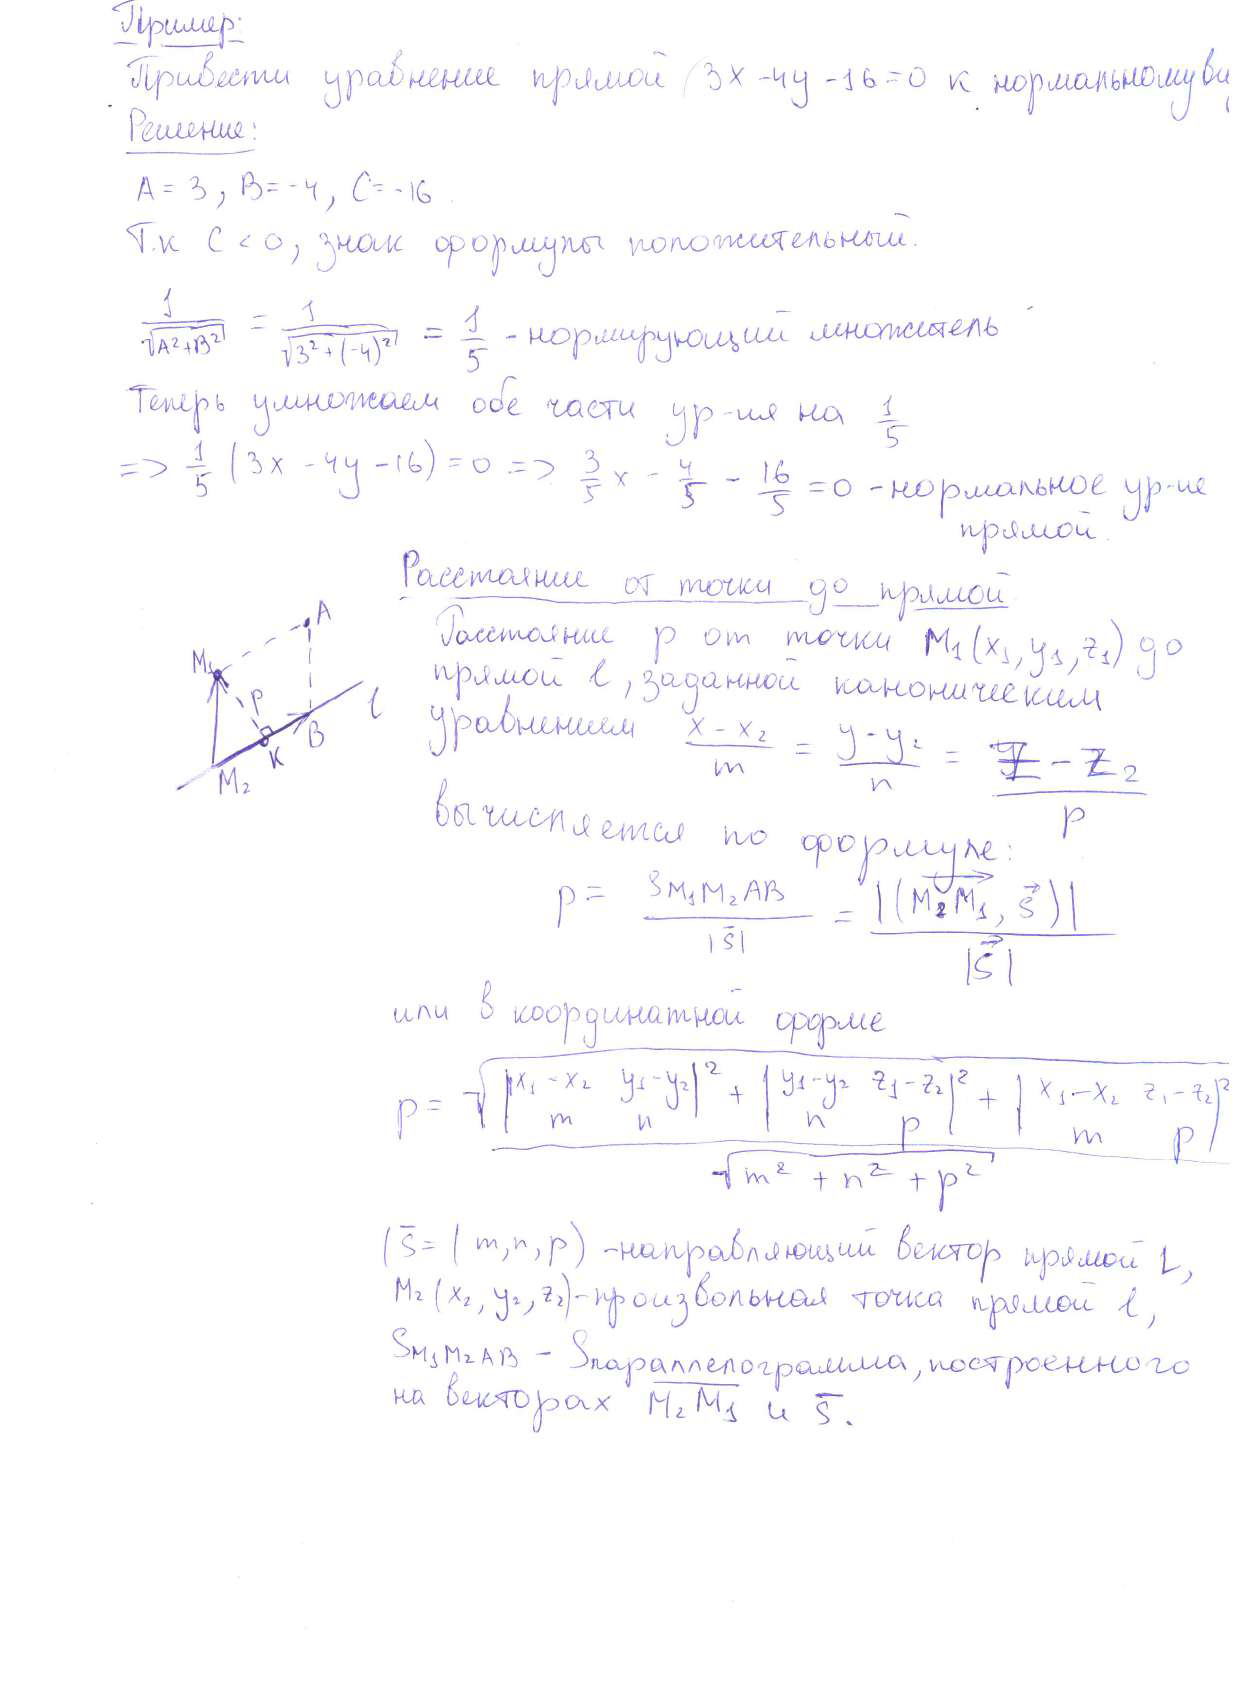 Пример:
Привести уравнение прямой (3x -4y -16=0 к нормальному ви
Решение:
A = 3, B = -4, C = -16.
Т.к C < 0, знак формулы положительный.
1/√(A²+B²) = 1/√(3²+(-4)²) = 1/5 - нормирующий множитель
Теперь умножаем обе части ур-ия на 1/5
=> 1/5 (3x -4y -16) = 0 => 3/5 x - 4/5 - 16/5 = 0 - нормальное ур-ие
прямой.
Расстояние от точки до прямой
Расстояние p от точки M₁(x₁, y₁, z₁) до
прямой l, заданной каноническим
уравнением (x - x₂)/m = (y - y₂)/n = (z - z₂)/p
вычисляется по формуле:
p = S M₁M₂AB / |s̄| = |(M₂M₁, s⃗)| / |s⃗|
или в координатной форме
p = √( |x₁-x₂ y₁-y₂; m n|² + |y₁-y₂ z₁-z₂; n p|² + |x₁-x₂ z₁-z₂; m p|² ) / √(m² + n² + p²)
(s̄ = (m, n, p) - направляющий вектор прямой L,
M₂(x₂, y₂, z₂) - произвольная точка прямой l,
S M₁M₂AB - S параллелограмма, построенного
на векторах M₂M₁ и s̄.
M₁
A
p
l
B
K
M₂